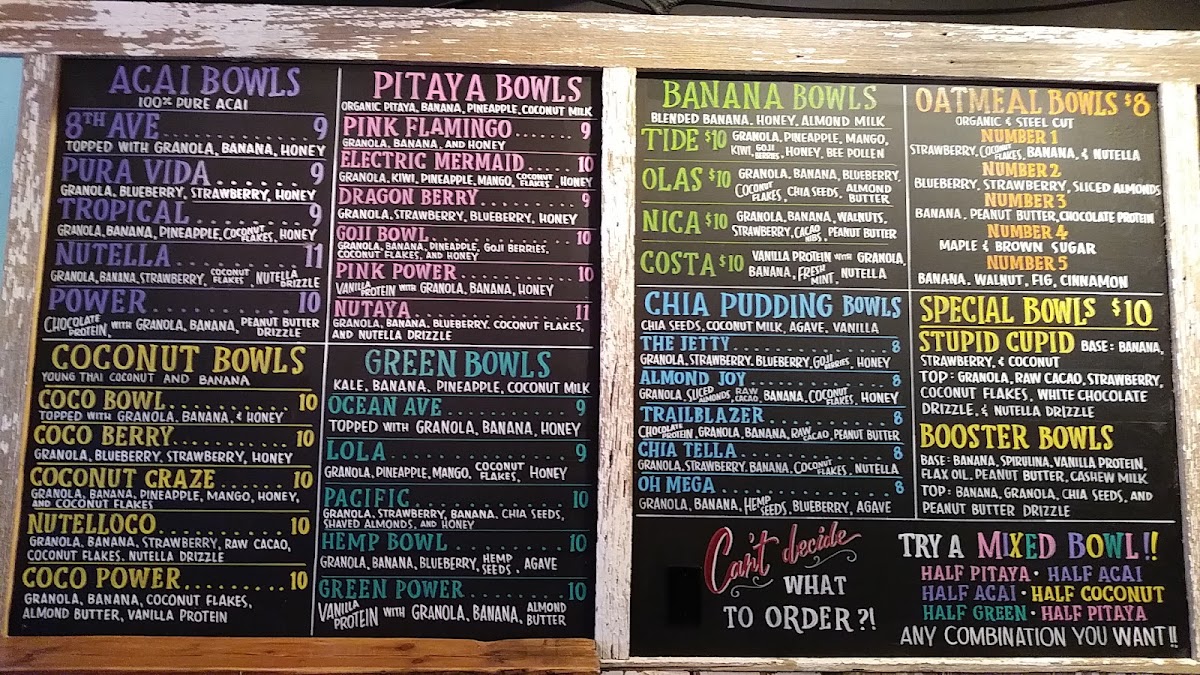 ACAI BOWLS
100% PURE ACAI
8TH AVE.................. 9
TOPPED WITH GRANOLA, BANANA, HONEY
PURA VIDA....... 9
GRANOLA, BLUEBERRY, STRAWBERRY, HONEY
TROPICAL......... 9
GRANOLA, BANANA, PINEAPPLE, COCONUT FLAKES, HONEY
NUTELLA......... 11
GRANOLA, BANANA, STRAWBERRY, COCONUT FLAKES, NUTELLA DRIZZLE
POWER............ 10
CHOCOLATE PROTEIN, WITH GRANOLA, BANANA, PEANUT BUTTER DRIZZLE
COCONUT BOWLS
YOUNG THAI COCONUT AND BANANA
COCO BOWL............ 10
TOPPED WITH GRANOLA, BANANA, & HONEY
COCO BERRY........... 10
GRANOLA, BLUEBERRY, STRAWBERRY, HONEY
COCONUT CRAZE...... 10
GRANOLA, BANANA, PINEAPPLE, MANGO, HONEY,
AND COCONUT FLAKES
NUTELLOCO............ 10
GRANOLA, BANANA, STRAWBERRY, RAW CACAO,
COCONUT FLAKES, NUTELLA DRIZZLE
COCO POWER.......... 10
GRANOLA, BANANA, COCONUT FLAKES,
ALMOND BUTTER, VANILLA PROTEIN
PITAYA BOWLS
ORGANIC PITAYA, BANANA, PINEAPPLE, COCONUT MILK
PINK FLAMINGO....... 9
GRANOLA, BANANA, AND HONEY
ELECTRIC MERMAID..... 10
GRANOLA, KIWI, PINEAPPLE, MANGO, COCONUT FLAKES, HONEY
DRAGON BERRY.......... 9
GRANOLA, STRAWBERRY, BLUEBERRY, HONEY
GOJI BOWL.............. 10
GRANOLA, BANANA, PINEAPPLE, GOJI BERRIES,
COCONUT FLAKES, AND HONEY
PINK POWER............ 10
VANILLA PROTEIN WITH GRANOLA, BANANA, HONEY
NUTAYA................ 11
GRANOLA, BANANA, BLUEBERRY, COCONUT FLAKES,
AND NUTELLA DRIZZLE
GREEN BOWLS
KALE, BANANA, PINEAPPLE, COCONUT MILK
OCEAN AVE............. 9
TOPPED WITH GRANOLA, BANANA, HONEY
LOLA................... 9
GRANOLA, PINEAPPLE, MANGO, COCONUT FLAKES, HONEY
PACIFIC................ 10
GRANOLA, STRAWBERRY, BANANA, CHIA SEEDS,
SHAVED ALMONDS, AND HONEY
HEMP BOWL............ 10
GRANOLA, BANANA, BLUEBERRY, HEMP SEEDS, AGAVE
GREEN POWER.......... 10
VANILLA PROTEIN WITH GRANOLA, BANANA, ALMOND BUTTER
BANANA BOWLS
BLENDED BANANA, HONEY, ALMOND MILK
TIDE $10 GRANOLA, PINEAPPLE, MANGO,
KIWI, GOJI BERRIES, HONEY, BEE POLLEN
OLAS $10 GRANOLA, BANANA, BLUEBERRY,
COCONUT FLAKES, CHIA SEEDS, ALMOND BUTTER
NICA $10 GRANOLA, BANANA, WALNUTS,
STRAWBERRY, CACAO NIBS, PEANUT BUTTER
COSTA $10 VANILLA PROTEIN WITH GRANOLA,
BANANA, FRESH MINT, NUTELLA
CHIA PUDDING BOWLS
CHIA SEEDS, COCONUT MILK, AGAVE, VANILLA
THE JETTY................ 8
GRANOLA, STRAWBERRY, BLUEBERRY, GOJI BERRIES, HONEY
ALMOND JOY............. 8
GRANOLA, SLICED ALMONDS, RAW CACAO, BANANA, COCONUT FLAKES, HONEY
TRAILBLAZER............ 8
CHOCOLATE PROTEIN, GRANOLA, BANANA, RAW CACAO, PEANUT BUTTER
CHIA TELLA.............. 8
GRANOLA, STRAWBERRY, BANANA, COCONUT FLAKES, NUTELLA
OH MEGA................ 8
GRANOLA, BANANA, HEMP SEEDS, BLUEBERRY, AGAVE
OATMEAL BOWLS $8
ORGANIC & STEEL CUT
NUMBER 1
STRAWBERRY, COCONUT FLAKES, BANANA, & NUTELLA
NUMBER 2
BLUEBERRY, STRAWBERRY, SLICED ALMONDS
NUMBER 3
BANANA, PEANUT BUTTER, CHOCOLATE PROTEIN
NUMBER 4
MAPLE & BROWN SUGAR
NUMBER 5
BANANA, WALNUT, FIG, CINNAMON
SPECIAL BOWLS $10
STUPID CUPID BASE: BANANA,
STRAWBERRY, & COCONUT
TOP: GRANOLA, RAW CACAO, STRAWBERRY,
COCONUT FLAKES, WHITE CHOCOLATE
DRIZZLE, & NUTELLA DRIZZLE
BOOSTER BOWLS
BASE: BANANA, SPIRULINA, VANILLA PROTEIN,
FLAX OIL, PEANUT BUTTER, CASHEW MILK
TOP: BANANA, GRANOLA, CHIA SEEDS, AND
PEANUT BUTTER DRIZZLE
Can't decide
WHAT
TO ORDER?!
TRY A MIXED BOWL!!
HALF PITAYA • HALF ACAI
HALF ACAI • HALF COCONUT
HALF GREEN • HALF PITAYA
ANY COMBINATION YOU WANT!!